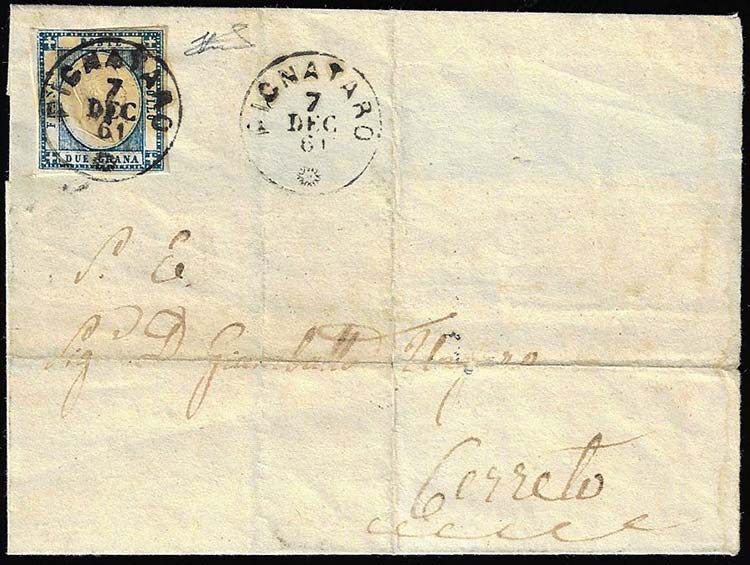 PIGNATARO
7
DEC
61
FRANCO
BOLLO
DUE GRANA
PIGNATARO
7
DEC
61
S. E.
Sig. D
Cerreto